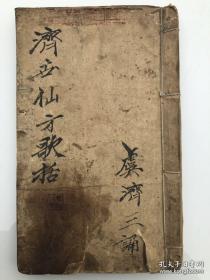 濟世仙方歌括
虞濟三誦
孔夫子旧书网